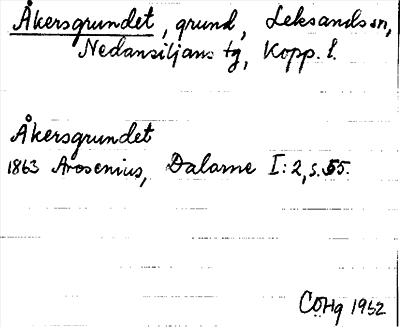 Åkersgrundet, grund, Leksands sn,
Nedansiljans tg, Kopp. l.
Åkersgrundet
1863 Arosenius, Dalarne I:2, s. 55.
CÖHg 1952